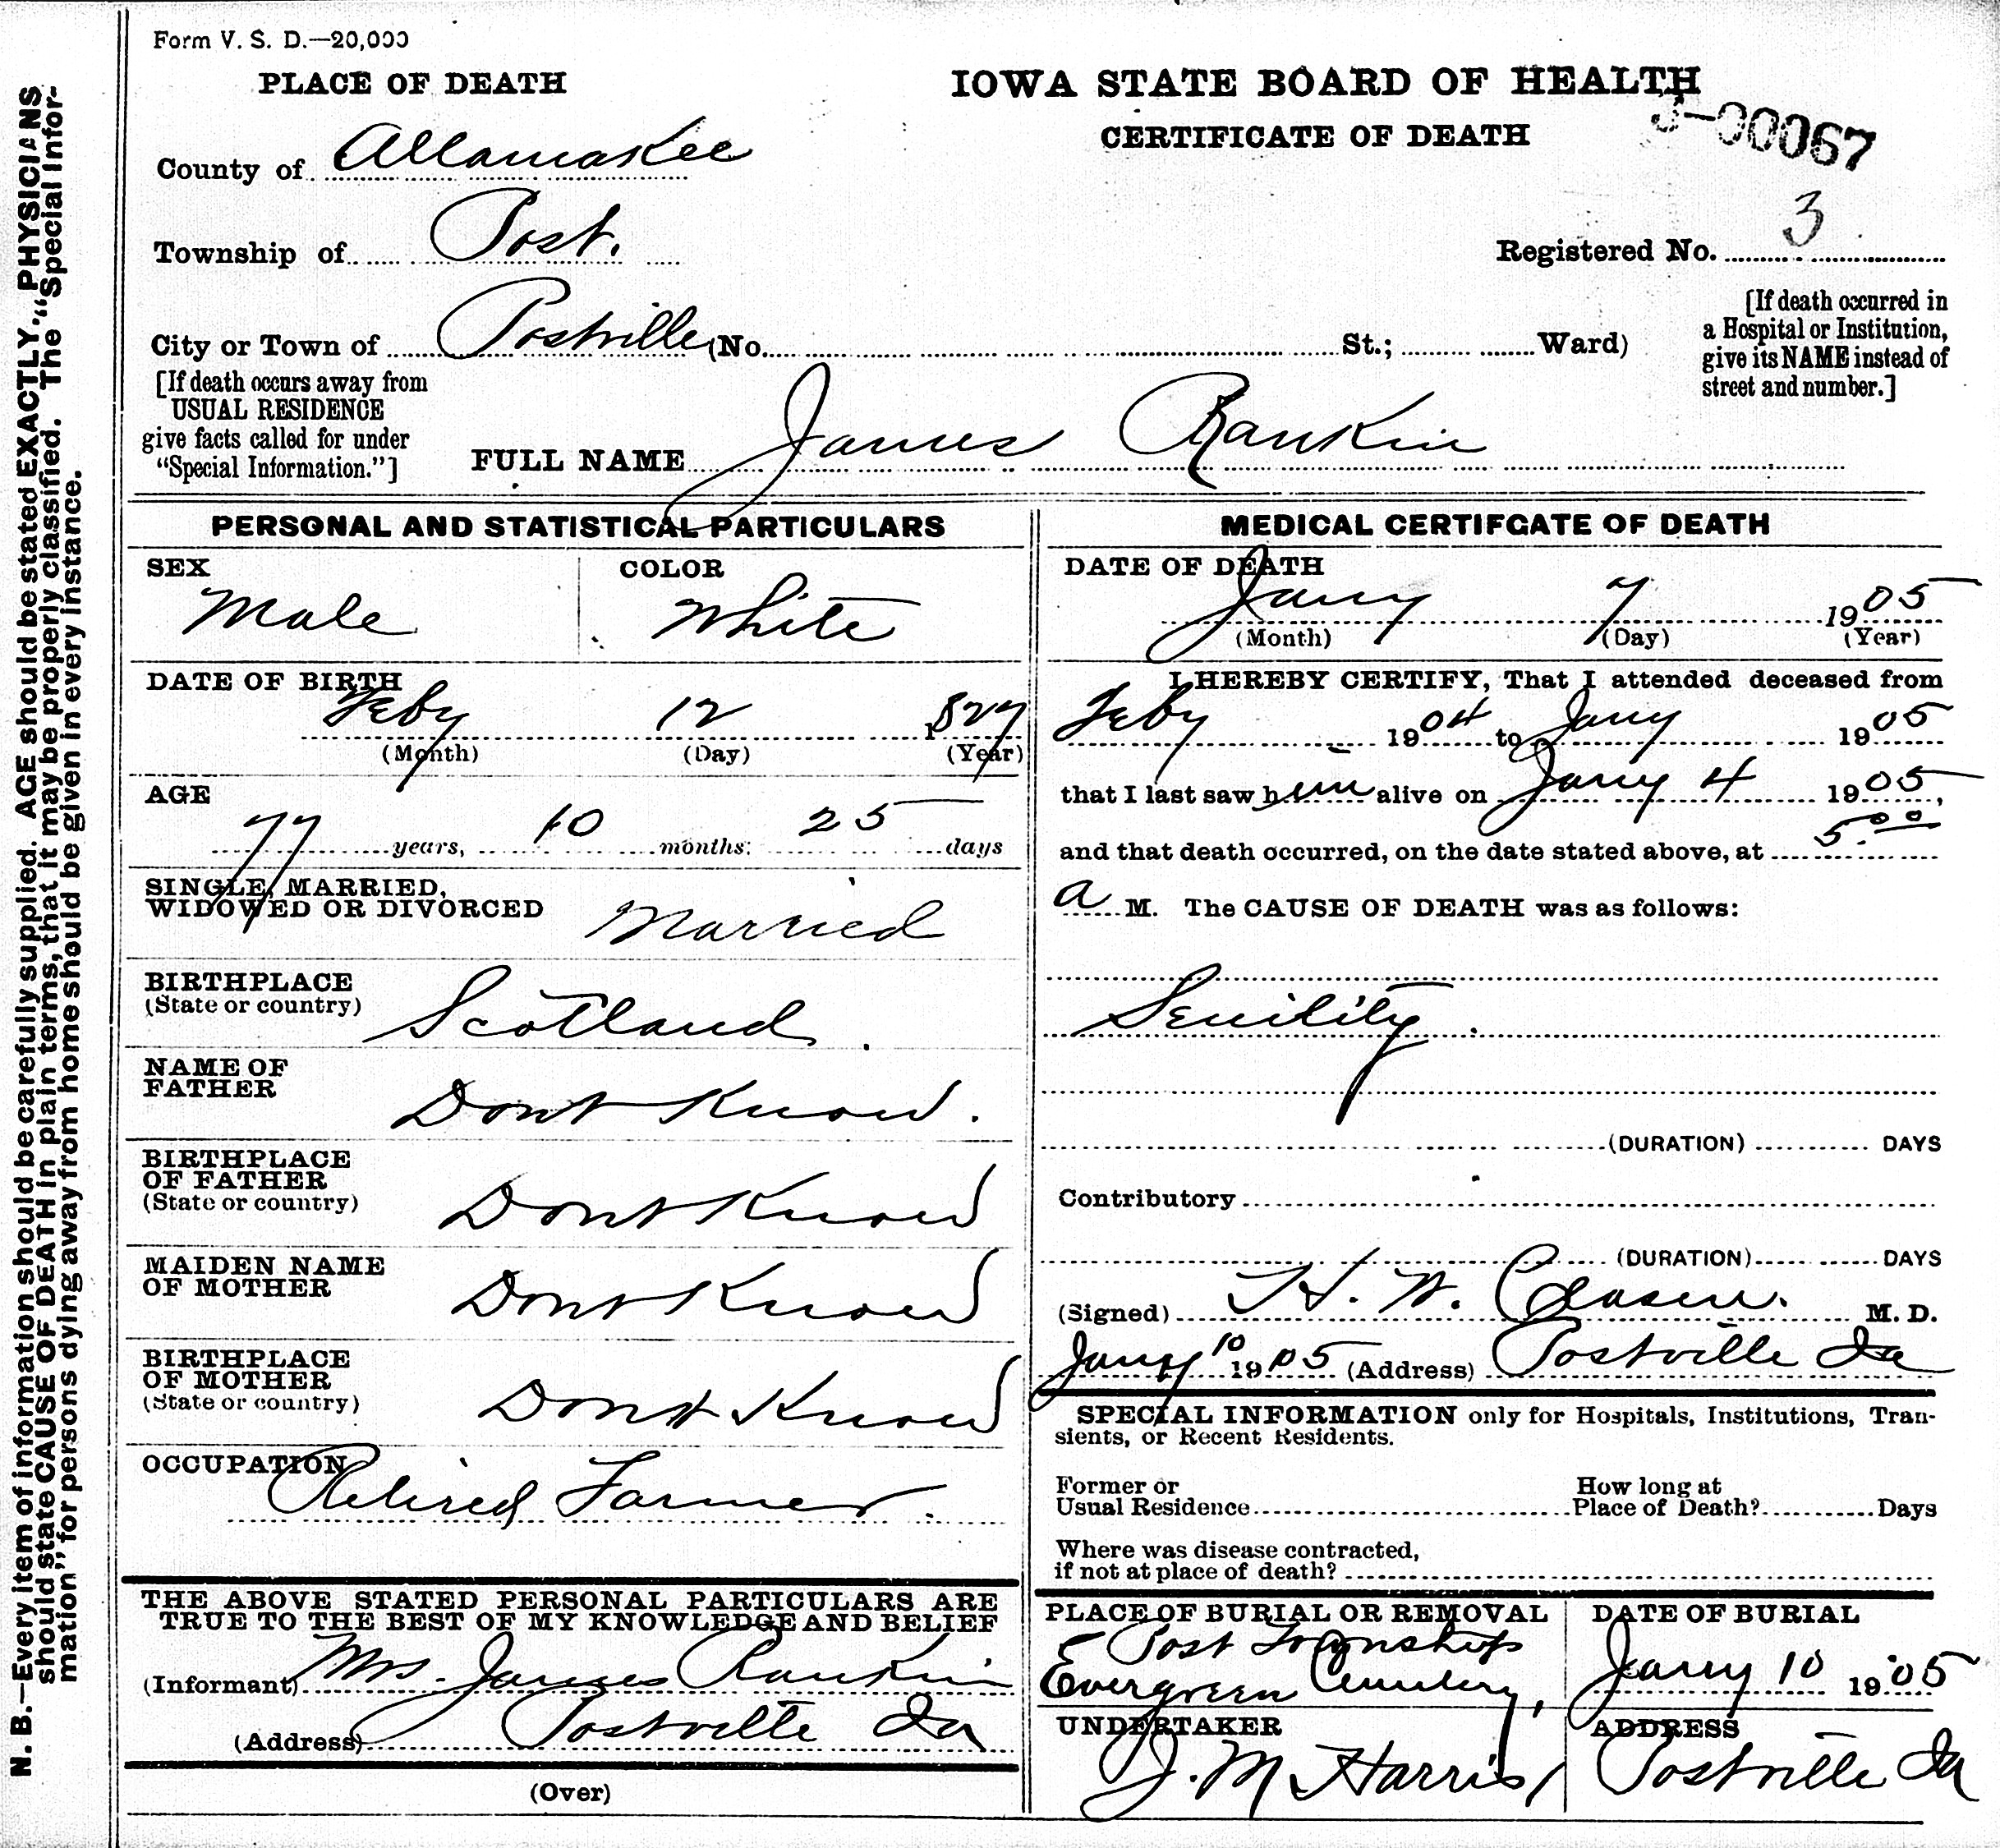 Form V. S. D.—20,000
PLACE OF DEATH
IOWA STATE BOARD OF HEALTH
CERTIFICATE OF DEATH
J-00067
County of Allamakee
Township of Post.
Registered No. 3
City or Town of Postville (No. St.; Ward)
[If death occurred in
a Hospital or Institution,
give its NAME instead of
street and number.]
[If death occurs away from
USUAL RESIDENCE
give facts called for under
“Special Information.”]
FULL NAME James Rankin
PERSONAL AND STATISTICAL PARTICULARS
SEX COLOR
Male White
DATE OF BIRTH
Feby 12 1827
(Month) (Day) (Year)
AGE
77 years, 10 months 25 days
SINGLE, MARRIED,
WIDOWED OR DIVORCED Married
BIRTHPLACE
(State or country) Scotland
NAME OF
FATHER Dont Know.
BIRTHPLACE
OF FATHER
(State or country) Dont Know
MAIDEN NAME
OF MOTHER Dont Know
BIRTHPLACE
OF MOTHER
(State or country) Dont Know
OCCUPATION
Retired Farmer.
THE ABOVE STATED PERSONAL PARTICULARS ARE
TRUE TO THE BEST OF MY KNOWLEDGE AND BELIEF
(Informant) Mrs. James Rankin
(Address) Postville Ia
(Over)
MEDICAL CERTIFCATE OF DEATH
DATE OF DEATH
Jany 7 1905
(Month) (Day) (Year)
I HEREBY CERTIFY, That I attended deceased from
Feby 1904 to Jany 1905
that I last saw him alive on Jany 4 1905,
and that death occurred, on the date stated above, at 5.00
a M. The CAUSE OF DEATH was as follows:
Senility.
(DURATION) DAYS
Contributory
(DURATION) DAYS
(Signed) H. W. M. D.
Jany 10 1905 (Address) Postville Ia
SPECIAL INFORMATION only for Hospitals, Institutions, Tran-
sients, or Recent Residents.
Former or How long at
Usual Residence Place of Death? Days
Where was disease contracted,
if not at place of death?
PLACE OF BURIAL OR REMOVAL
Post Township
Evergreen Cemetery,
DATE OF BURIAL
Jany 10 1905
UNDERTAKER
J. M Harris
ADDRESS
Postville Ia
N. B.—Every item of information should be carefully supplied. AGE should be stated EXACTLY. PHYSICIANS
should state CAUSE OF DEATH in plain terms, that it may be properly classified. The “Special Infor-
mation” for persons dying away from home should be given in every instance.